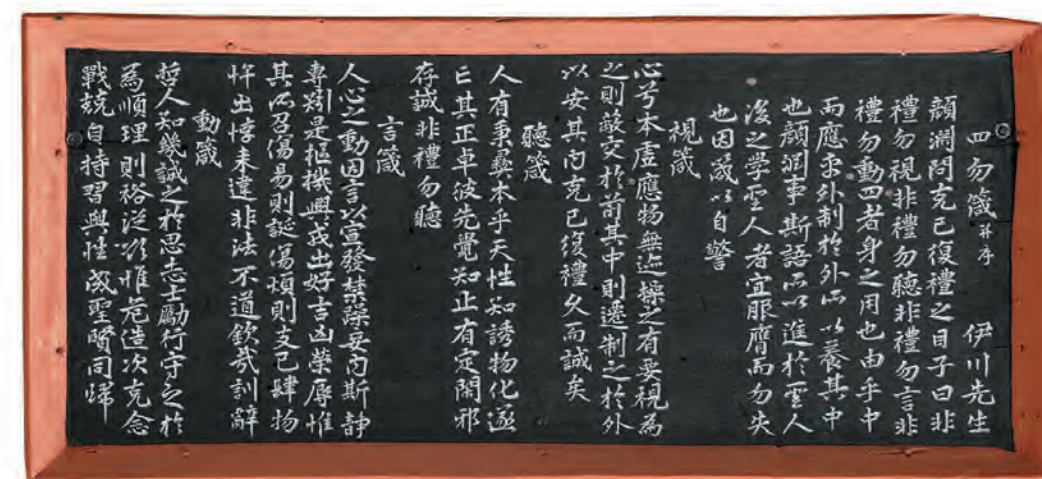 四勿箴 并序 伊川先生
顔淵問克己復禮之目子曰非
禮勿視非禮勿聽非禮勿言非
禮勿動四者身之用也由乎中
而應乎外制於外所以養其中
也顔渕事斯語所以進於聖人
後之学聖人者宜服膺而勿失
也因箴以自警
視箴
心兮本虛應物無迹操之有要視為
之則蔽交於前其中則遷制之於外
以安其內克己復禮久而誠矣
聽箴
人有秉彝本乎天性知誘物化遂
亡其正卓彼先覺知止有定閑邪
存誠非禮勿聽
言箴
人心之動因言以宣發禁躁妄內斯静
專矧是樞機興戎出好吉凶榮辱惟
其所召傷易則誕傷煩則支己肆物
忤出悖来違非法不道欽哉訓辭
動箴
哲人知幾誠之於思志士勵行守之於
為順理則裕從欲惟危造次克念
戰兢自持習與性成聖賢同歸